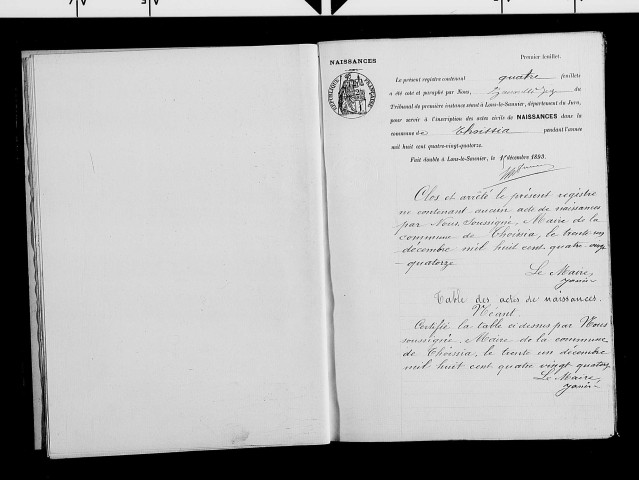 NAISSANCES
Premier feuillet.
RÉPUBLIQUE FRANÇAISE
Le présent registre contenant quatre feuillets
a été coté et paraphé par Nous, du
Tribunal de première instance séant à Lons-le-Saunier, département du Jura,
pour servir à l'inscription des actes civils de NAISSANCES dans la
commune de Thoissia pendant l'année
mil huit cent quatre-vingt-quatorze.
Fait double à Lons-le-Saunier, le 1er décembre 1893.
Clos et arrêté le présent registre
ne contenant aucun acte de naissances
par Nous, soussigné, Maire de la
commune de Thoissia, le trente un
décembre mil huit cent quatre vingt
quatorze
Le Maire,
Janin
Table des actes de naissances.
Néant.
Certifié la table ci dessus par Nous
soussigné, Maire de la commune
de Thoissia, le trente un décembre
mil huit cent quatre vingt quatorze
Le Maire,
Janin